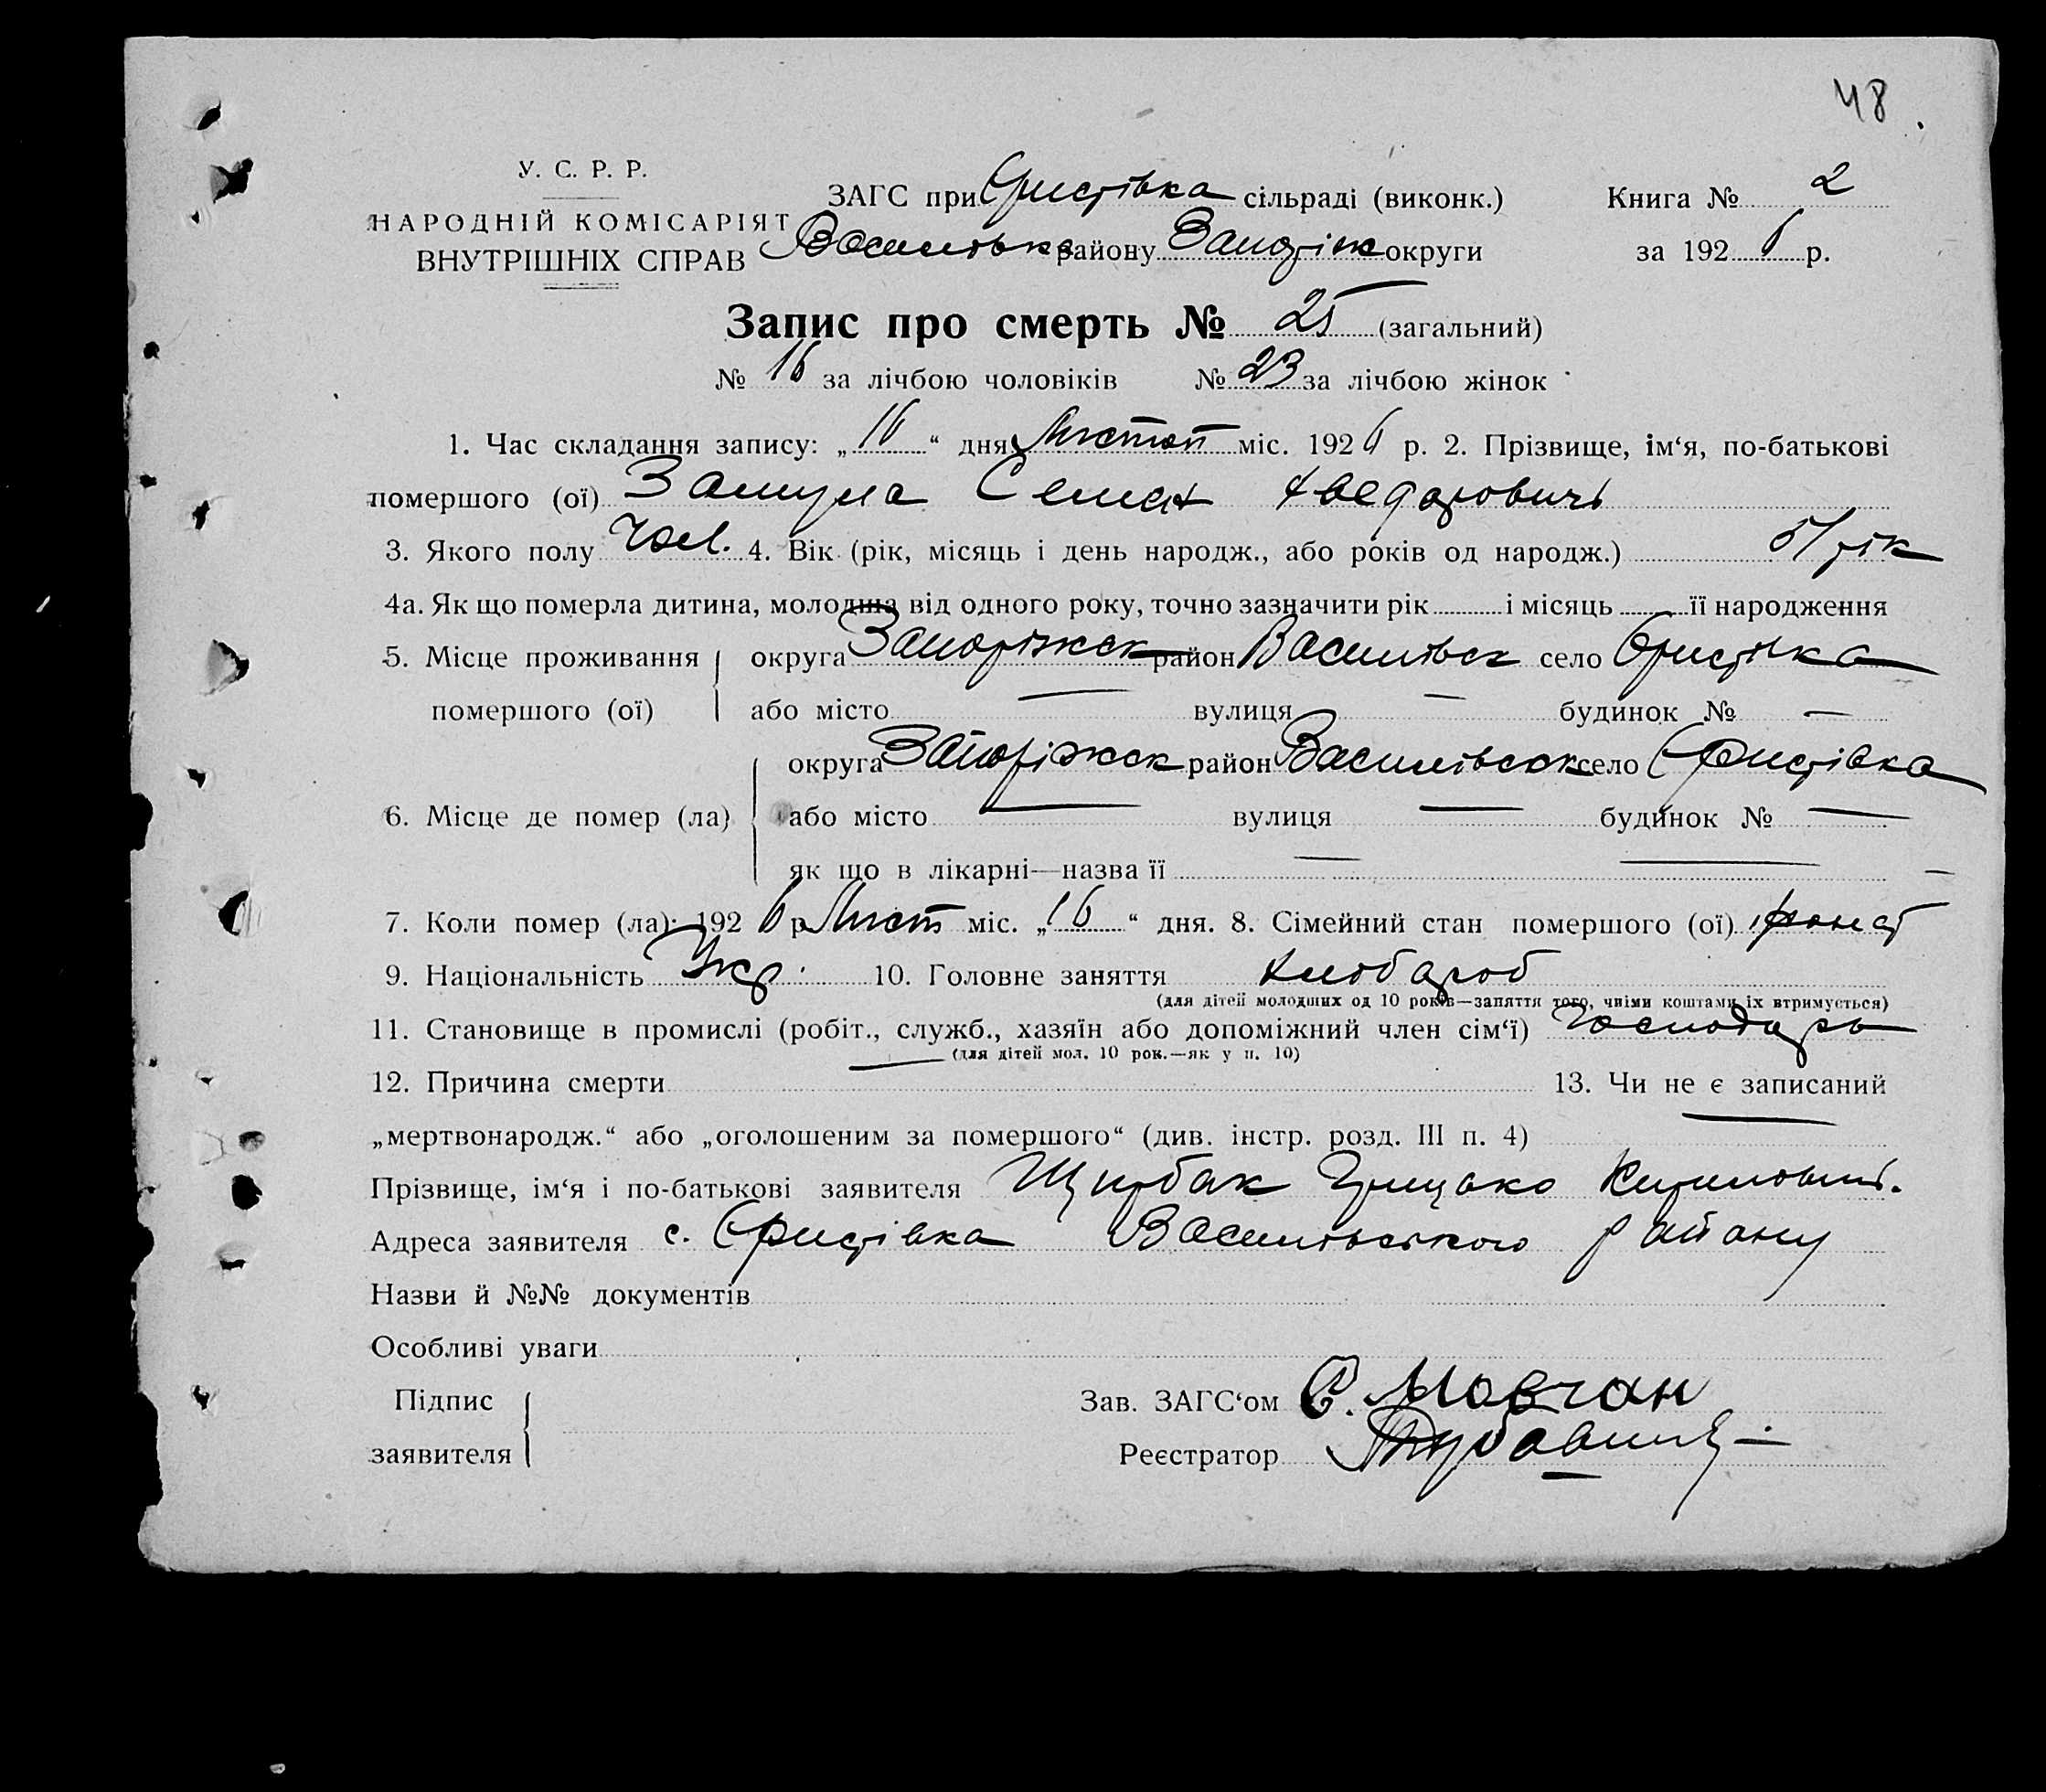 48.
У. С. Р. Р.
НАРОДНІЙ КОМІСАРІЯТ
ВНУТРІШНІХ СПРАВ
ЗАГС при Єристівка сільраді (виконк.)
Василівка району Запоріж округи
Книга № 2
за 1926 р.
Запис про смерть № 25 (загальний)
№ 16 за лічбою чоловіків № 23 за лічбою жінок
1. Час складання запису: „16“ дня Листоп міс. 1926 р. 2. Прізвище, ім‘я, по-батькові
помершого (ої) Семен
3. Якого полу Чол. 4. Вік (рік, місяць і день народж., або років од народж.) 51 рік
4а. Як що померла дитина, молодша від одного року, точно зазначити рік і місяць її народження
5. Місце проживання округа Запоріжск район Василівск село Єристівка
помершого (ої) або місто — вулиця — будинок № —
округа Запоріжск район Василівськ село Єристівка
6. Місце де помер (ла) або місто — вулиця — будинок № —
як що в лікарні—назва її — — —
7. Коли помер (ла): 1926 р Лист міс. „16“ дня. 8. Сімейний стан помершого (ої) жонат
9. Національність Укр. 10. Головне заняття хлібароб
(для дітей молодших од 10 років—заняття того, чиїми коштами їх втримується)
11. Становище в промислі (робіт., служб., хазяїн або допоміжний член сім‘ї) Господарь
(для дітей мол. 10 рок.—як у п. 10)
12. Причина смерти — 13. Чи не є записаний
„мертвонародж.“ або „оголошеним за помершого“ (див. інстр. розд. III п. 4) —
Прізвище, ім‘я і по-батькові заявителя Щирбак Грицько Кирилович.
Адреса заявителя с. Єристівка Василівського району
Назви й №№ документів
Особливі уваги
Підпис
заявителя
Зав. ЗАГС‘ом С. Мовчан
Реєстратор